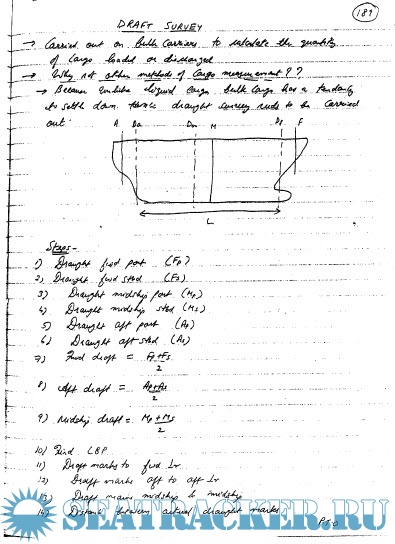 189
DRAFT SURVEY
→ Carried out on Bulk Carriers to calculate the quantity
of Cargo loaded or discharged
→ Why not other methods of Cargo measurement??
→ Because unlike liquid cargo bulk cargo has a tendency
to settle down hence draught survey needs to be carried
out.
A Da Dm M Df F
L
Steps -
1) Draught fwd port (Fp)
2) Draught fwd stbd (Fs)
3) Draught midship port (Mp)
4) Draught midship stbd (Ms)
5) Draught aft port (Ap)
6) Draught aft stbd (As)
7) Fwd draft = Fp+Fs
2
8) Aft draft = Ap+As
2
9) Midship draft = Mp+Ms
2
10) Find LBP
11) Draft marks to fwd ⊥r
12) Draft marks aft to aft ⊥r
13) Draft marks midship to midship
14) Distance between actual draught marks
P.T.O
SEATRACKER.RU